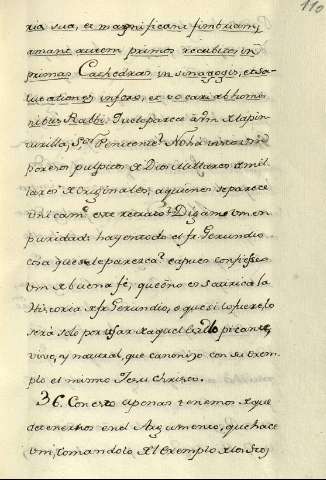 110
ria sua, et magnificant fimbrias,
amant autem primos recubitos in
primas Cathedras in sinagogis, et sa-
lutationes in foro, et vocari ab homi
nibus Rabbi. Que le parece à Vm. de la pin
turilla, Sor. Penitente? No ha visto Vm
por esos pulpitos de Dios millares de mil
lares de originales, a quienes se parece
vivissimamte. este retrato? Digame Vm en
puridad: hay en todo el fr. Gerundio
cosa que se le parezca? ea pues confiese
Vm de buena fe, que ò no es satirica la
Historia de fr. Gerundio, ò que si lo fuere, lo
será solo por usar de aquel estilo picante,
vivo, y natural, que canonizó con su exem-
plo el mismo Jesu Christo.
36. Con esto apenas tenemos de que
detenernos en el Argumento, que hace
Vm, tomandolo del exemplo de los Pros